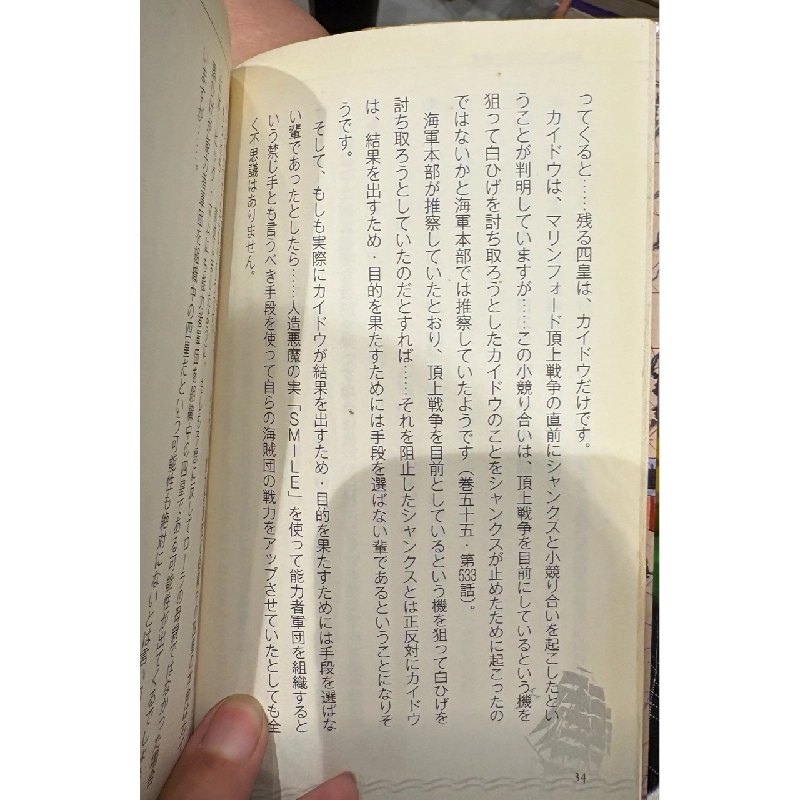 ってくると……残る四皇は、カイドウだけです。
カイドウは、マリンフォード頂上戦争の直前にシャンクスと小競り合いを起こしたとい
うことが判明していますが……この小競り合いは、頂上戦争を目前にしているという機を
狙って白ひげを討ち取ろうとしたカイドウのことをシャンクスが止めたために起こったの
ではないかと海軍本部では推察していたようです（巻五十五・第533話）。
海軍本部が推察していたとおり、頂上戦争を目前としているという機を狙って白ひげを
討ち取ろうとしていたのだとすれば……それを阻止したシャンクスとは正反対にカイドウ
は、結果を出すため・目的を果たすためには手段を選ばない輩であるということになりそ
うです。
そして、もしも実際にカイドウが結果を出すため・目的を果たすためには手段を選ばな
い輩であったとしたら……人造悪魔の実「ＳＭＩＬＥ」を使って能力者軍団を組織すると
いう禁じ手とも言うべき手段を使って自らの海賊団の戦力をアップさせていたとしても全
く不思議はありません。
34